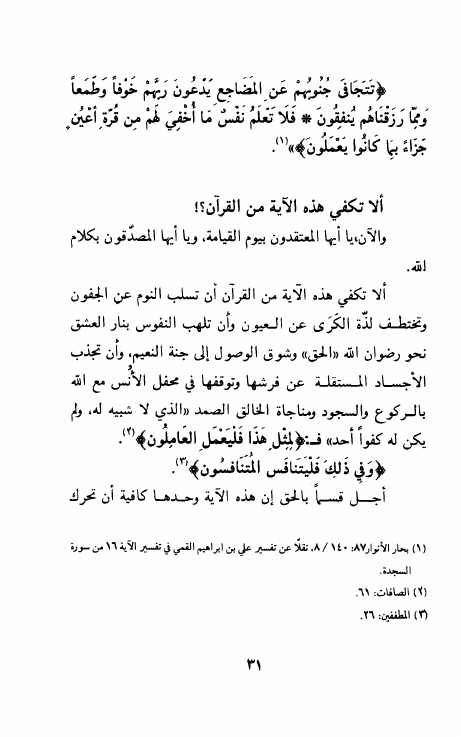 ﴿تَتَجَافَى جُنُوبُهُمْ عَنِ المَضَاجِعِ يَدْعُونَ رَبَّهُمْ خَوْفاً وَطَمَعاً
وَمِمَّا رَزَقْنَاهُم يُنفِقُونَ * فَلَا تَعْلَمُ نَفْسٌ مَا أُخْفِيَ لَهُمْ مِن قُرَّةِ أَعْيُنٍ
جَزَاءً بِمَا كَانُوا يَعْمَلُونَ﴾»(١).
ألا تكفي هذه الآية من القرآن؟!
والآن، يا أيها المعتقدون بيوم القيامة، ويا أيها المصدّقون بكلام
الله.
ألا تكفي هذه الآية من القرآن أن تسلب النوم عن الجفون
وتختطف لذّة الكَرَى عن العيون وأن تلهب النفوس بنار العشق
نحو رضوان الله «الحق» وشوق الوصول إلى جنة النعيم، وأن تجذب
الأجساد المستقلة عن فرشها وتوقفها في محفل الأُنس مع الله
بالركوع والسجود ومناجاة الخالق الصمد «الذي لا شبيه له، ولم
يكن له كفواً أحد» فـ: ﴿لِمِثْلِ هَذَا فَلْيَعْمَلِ العَامِلُونَ﴾(٢).
﴿وَفِي ذَلِكَ فَلْيَتَنَافَسِ المُتَنَافِسُونَ﴾(٣).
أجل قسماً بالحق إن هذه الآية وحدها كافية أن تحرك
(١) بحار الأنوار٨٧: ١٤٠ / ٨، نقلًا عن تفسير علي بن ابراهيم القمي في تفسير الآية ١٦ من سورة
السجدة.
(٢) الصافات: ٦١.
(٣) المطففين: ٢٦.
٣١